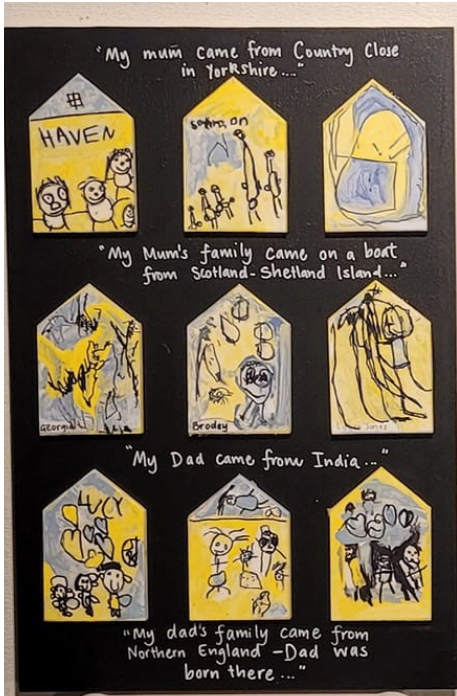 "My mum came from Country Close
in Yorkshire...."
HAVEN
"My Mum's family came on a boat
from Scotland-Shetland Island..."
Georgia
Brodey
"My Dad came from India..."
LUCY
"My dad's family came from
Northern England -Dad was
born there..."